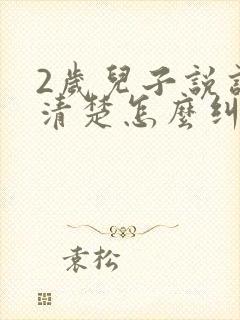 2歲兒子說
清楚怎麼糾
袁松